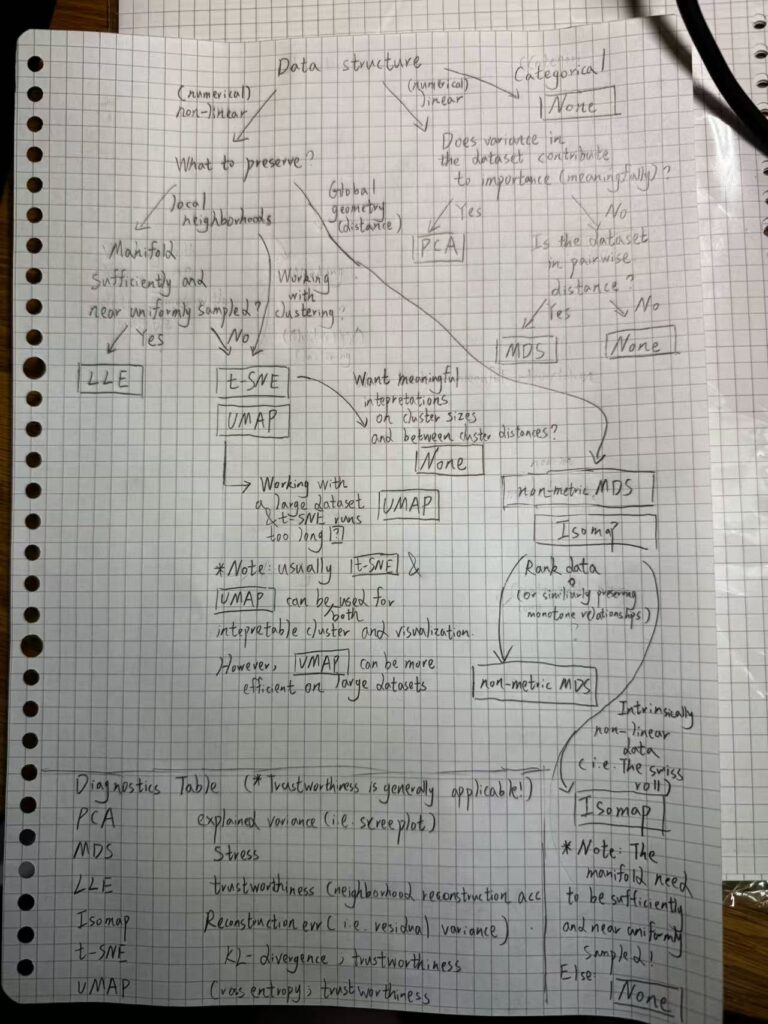 Data structure
(numerical)
non-linear
(numerical)
linear
Categorical
None
What to preserve?
Does variance in
the dataset contribute
to importance (meaningfully)?
local
neighborhoods
Global
geometry
(distance)
Yes
No
PCA
Manifold
sufficiently and
near uniformly sampled?
Working
with
clustering?
Is the dataset
in pairwise
distance?
Yes
No
Yes
No
MDS
None
LLE
t-SNE
UMAP
Want meaningful
intepretations
on cluster sizes
and between cluster distances?
None
Working with
a large dataset
& t-SNE runs
too long?
UMAP
non-metric MDS
Isomap
*Note: usually t-SNE &
UMAP can be both used for
intepretable cluster and visualization.
However, UMAP can be more
efficient on large datasets
Rank data
(or similarly preserving
monotone relationships)
?
non-metric MDS
Intrinsically
non-linear
data
(i.e. The swiss
roll)
Isomap
*Note: The
manifold need
to be sufficiently
and near uniformly
sampled!
Else:
None
Diagnostics Table (*Trustworthiness is generally applicable!)
PCA explained variance (i.e. scree plot)
MDS Stress
LLE trustworthiness (neighborhood reconstruction acc
Isomap Reconstruction err (i.e. residual variance)
t-SNE KL-divergence, trustworthiness
UMAP Cross entropy, trustworthiness